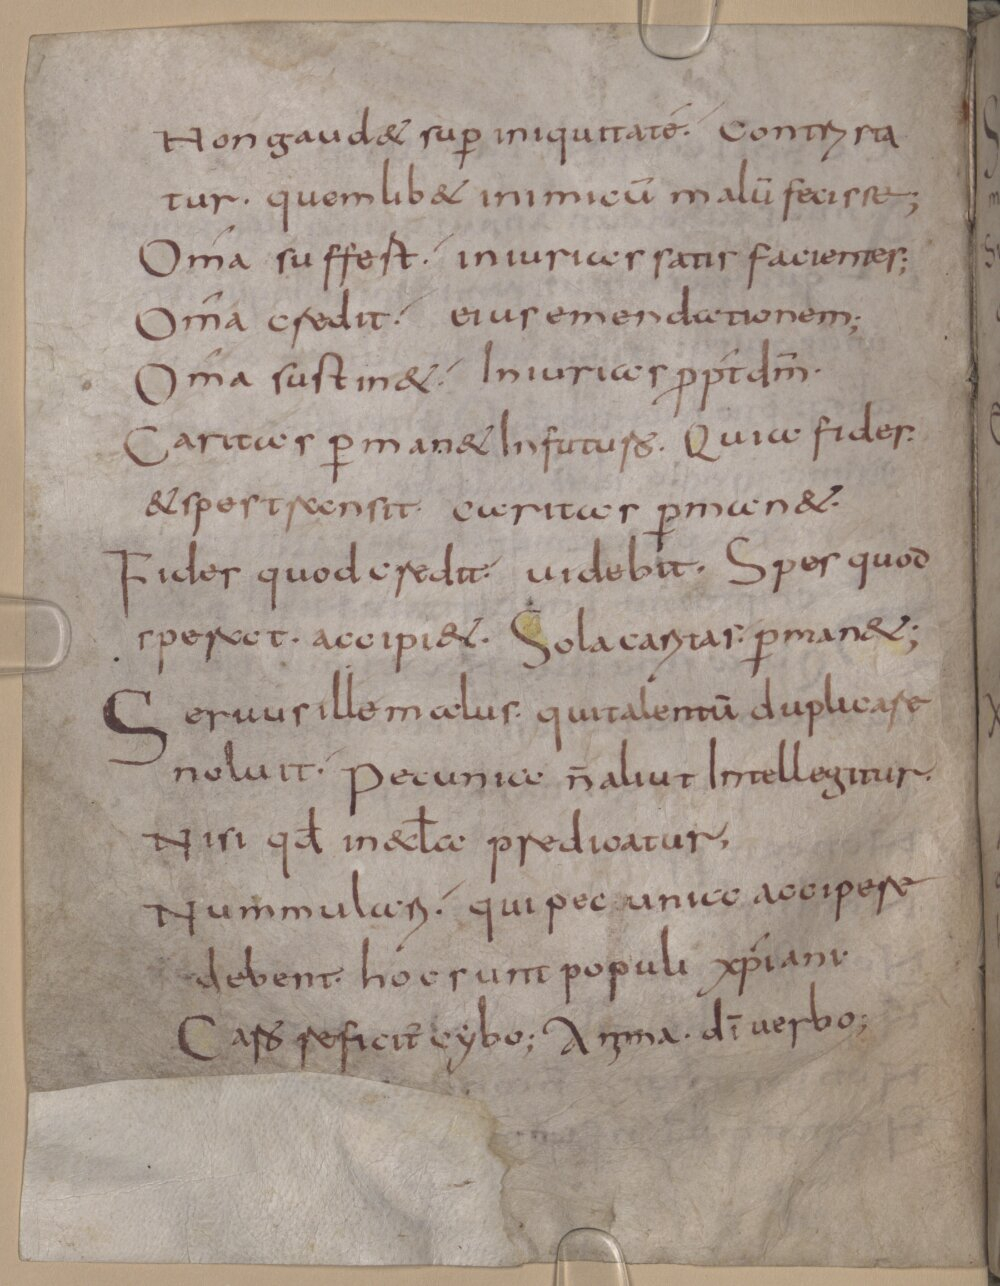 Non gaud& sup̄ iniquitatē. Contris ta
tur. quemlib& inimicū malū fecisse;
Om̄a suffert. iniurias satis facientes;
Om̄a credit. eius emendationem;
Om̄a sustin&. Iniurias p̱p̄t dm̄.
Caritas p̱man& In futuro. Quia fides.
& spes transit. caritas p̱man&.
Fides quod credit. uidebit. Spes quod
sperat. accipi&. Sola caritas. p̱man&;
Seruus ille malus. qui talentū duplicare
noluit. Pecunia n̄ aliut Intellegitur.
Nisi qđ in æcła predicatur;
Nummularii. qui pecunia accipere
debent. hoc sunt populi xp̄iani.
Caro reficit̄ cybo; Anima. dī uerbo;